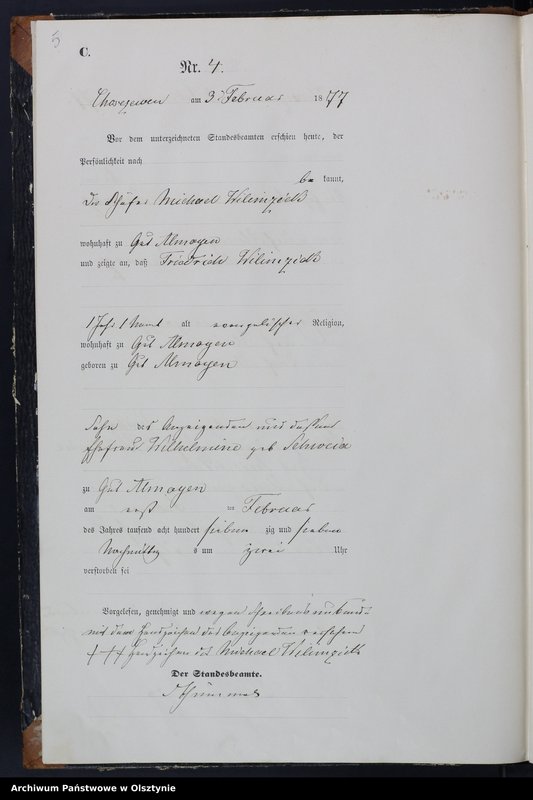 5
C.
Nr. 4.
am 3 Februar 1877
Vor dem unterzeichneten Standesbeamten erschien heute, der
Persönlichkeit nach
be kannt,
Michael Wilimzick
wohnhaft zu Gut Almoyen
und zeigte an, daß Friedrich Wilimzick
1 Jahr 1 Monat alt evangelischer Religion,
wohnhaft zu Gut Almoyen
geboren zu Gut Almoyen
Sohn des Anzeigenden und dessen
Ehefrau Wilhelmine geb
zu Gut Almoyen
am erst ten Februar
des Jahres tausend acht hundert sieben zig und sieben
Nachmittag s um zwei Uhr
verstorben sei
Vorgelesen, genehmigt und wegen
mit dem Handzeichen des Anzeigenden versehen
+++ Handzeichen des Michael Wilimzick
Der Standesbeamte.
Archiwum Państwowe w Olsztynie